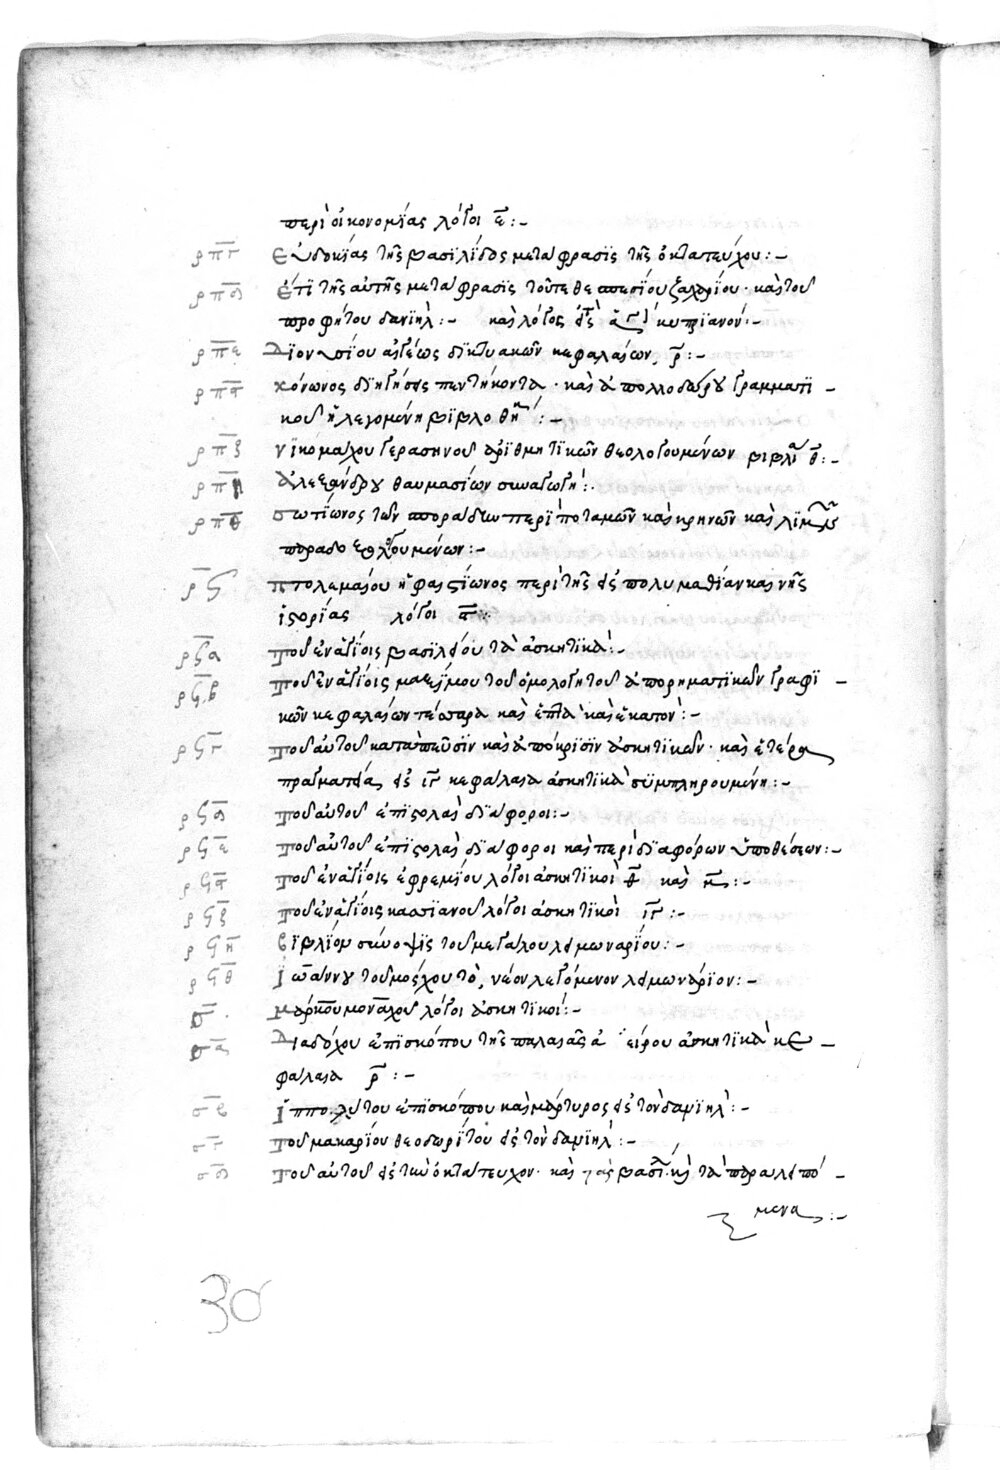 περὶ οἰκονομίας λόγοι ε̄:-
ρπγ Εὐδοκίας τῆς βασιλίδος μετάφρασις τῆς ὀκτατεύχου:-
ρπδ ἔτι τῆς αὐτῆς μετάφρασις τοῦτε θεσπεσίου ζαχαρίου· καὶ τοῦ
προφήτου δανιὴλ:- καὶ λόγος εἰς κυπριανόν:-
ρπε Διονυσίου αἰγέως δικτυακῶν κεφαλαίων ρ̄:-
ρπϛ κόνωνος διηγήσεις πεντήκοντα· καὶ ἀπολλοδώρου γραμματι
κοῦ ἡ λεγομένη βιβλοθη:-
ρπζ νικομάχου γερασηνοῦ ἀριθμητικῶν θεολογουμένων βιβλι θ̄:-
ρπη ἀλεξάνδρου θαυμασίων συναγωγή:
ρπθ σωτίωνος τῶν σποράδην περὶ ποταμῶν καὶ κρηνῶν καὶ λιμνῶν
παραδοξολογουμένων:-
ρϟ πτολεμαίου ἡφαιστίωνος περὶ τῆς εἰς πολυμαθίαν καινῆς
ἱστορίας λόγοι
ρϟα τοῦ ἐν ἁγίοις βασιλείου τὰ ἀσκητικὰ:-
ρϟβ τοῦ ἐν ἁγίοις μαξίμου τοῦ ὁμολογητοῦ ἀπορηματικῶν γραφι -
κῶν κεφαλαίων τέσσαρα καὶ ἑπτὰ καὶ ἑκατόν:-
ρϟγ τοῦ αὐτοῦ κατὰ πεῦσιν καὶ ἀπόκρισιν ἀσκητικῶν· καὶ ἑτέρα
πραγματεία εἰς κεφάλαια ἀσκητικὰ συμπληρουμένη:-
ρϟδ τοῦ αὐτοῦ ἐπιστολαὶ διάφοροι:-
ρϟε τοῦ αὐτοῦ ἐπιστολαὶ διάφοροι καὶ περὶ διαφόρων ὑποθέσεων:-
ρϟϛ τοῦ ἐν ἁγίοις ἐφρεμίου λόγοι ἀσκητικοὶ θ̄ καὶ μ̄:-
ρϟζ τοῦ ἐν ἁγίοις κασιανοῦ λόγοι ἀσκητικοὶ ιγ:-
ρϟη βιβλίον σύνοψις τοῦ μεγάλου λειμωναρίου:-
ρϟθ Ἰωάννου τοῦ μόσχου τὸ, νέον λεγόμενον λειμωνάριον:-
σ μάρκου μοναχοῦ λόγοι ἀσκητικοί:-
σα Διαδόχου ἐπισκόπου τῆς παλαιᾶς ἠπείρου ἀσκητικὰ κε -
φάλαια ρ̄:-
σβ Ἱππολύτου ἐπισκόπου καὶ μάρτυρος εἰς τὸν δανιὴλ:-
σγ τοῦ μακαρίου θεοδωρίτου εἰς τὸν δανιὴλ:-
σδ τοῦ αὐτοῦ εἰς τὴν ὀκτάτευχον· καὶ τὰς βασιλ καὶ τὰ παραλειπό -
μενα:-
30